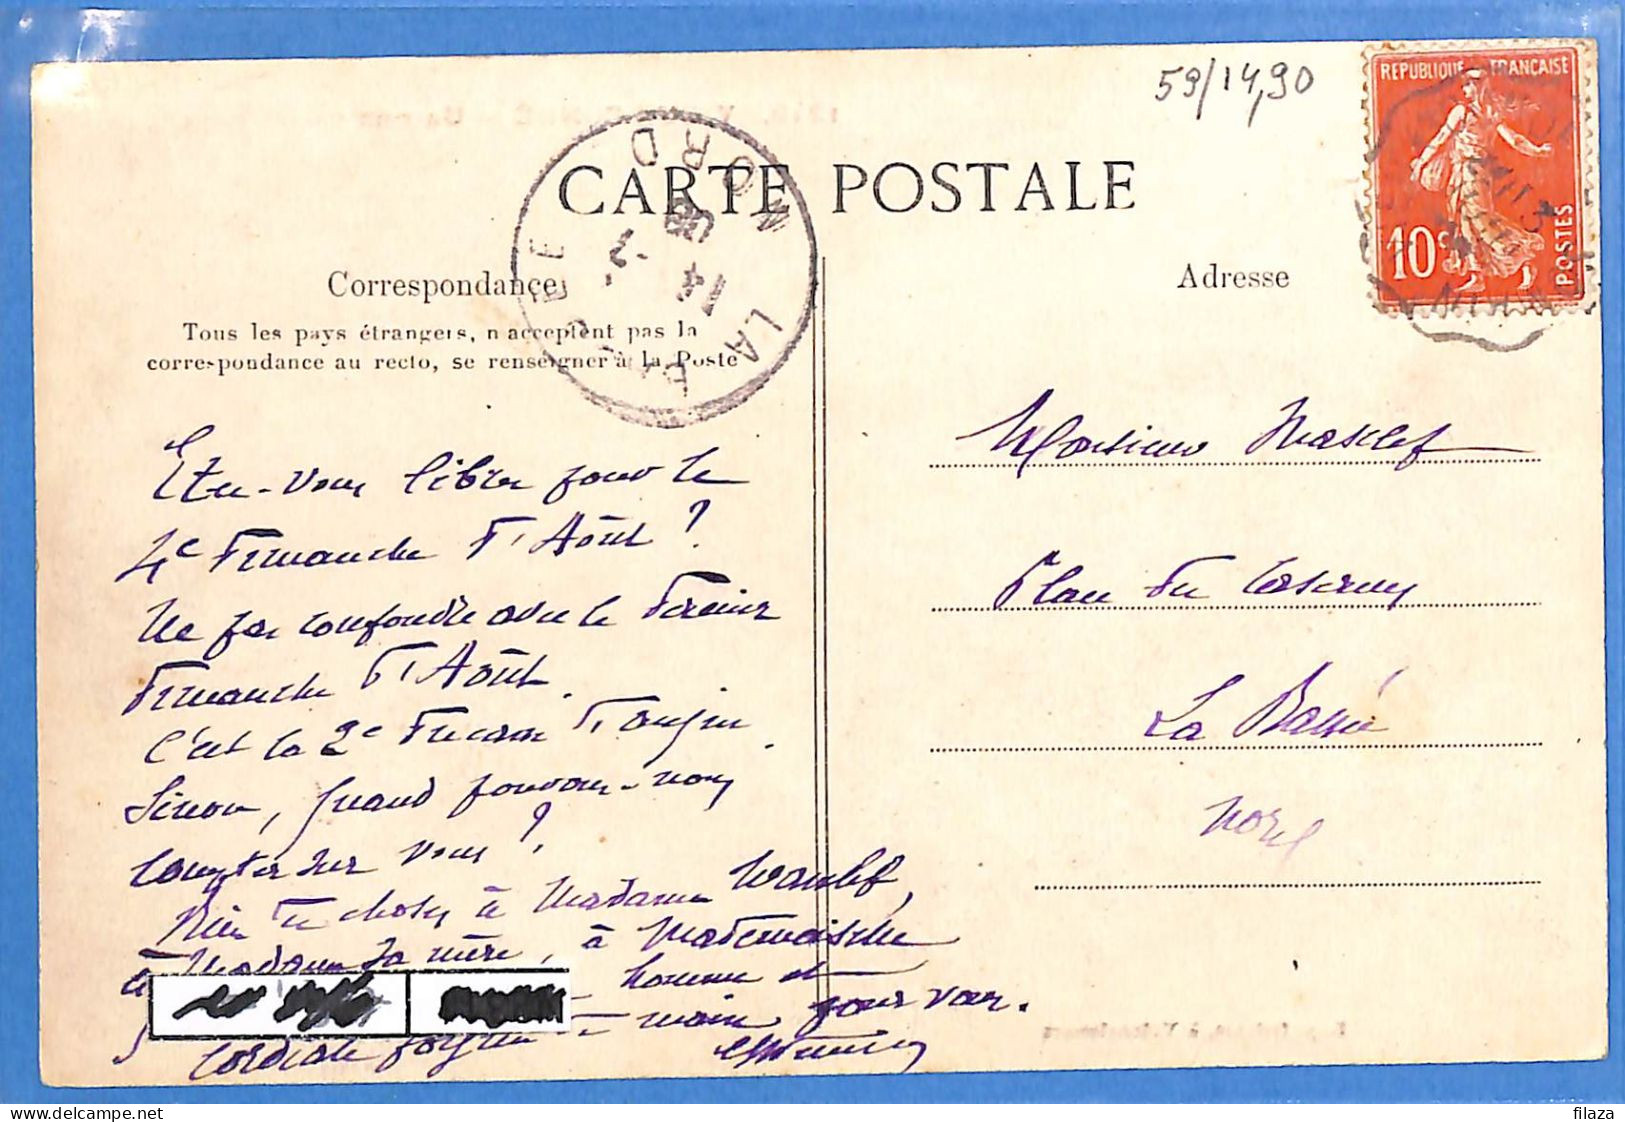 59/14,90
REPUBLIQUE FRANÇAISE
10c
POSTES
CARTE POSTALE
NORD
14
LA BA
Correspondance
Adresse
Tous les pays étrangers, n'acceptent pas la
correspondance au recto, se renseigner à la Poste
Monsieur Masclef
Place du
La Bassée
Nord
Etes-vous libre pour le
4e Dimanche d'Août ?
Ne pas confondre avec le dernier
Dimanche d'Août.
C'est la 2e Ducasse d'
Sinon, quand pouvons-nous
compter sur vous ?
Bien des choses à Madame
à Madame sa mère, à Mademoiselle
homme et
Cordiale poignée de main pour vous.
filaza